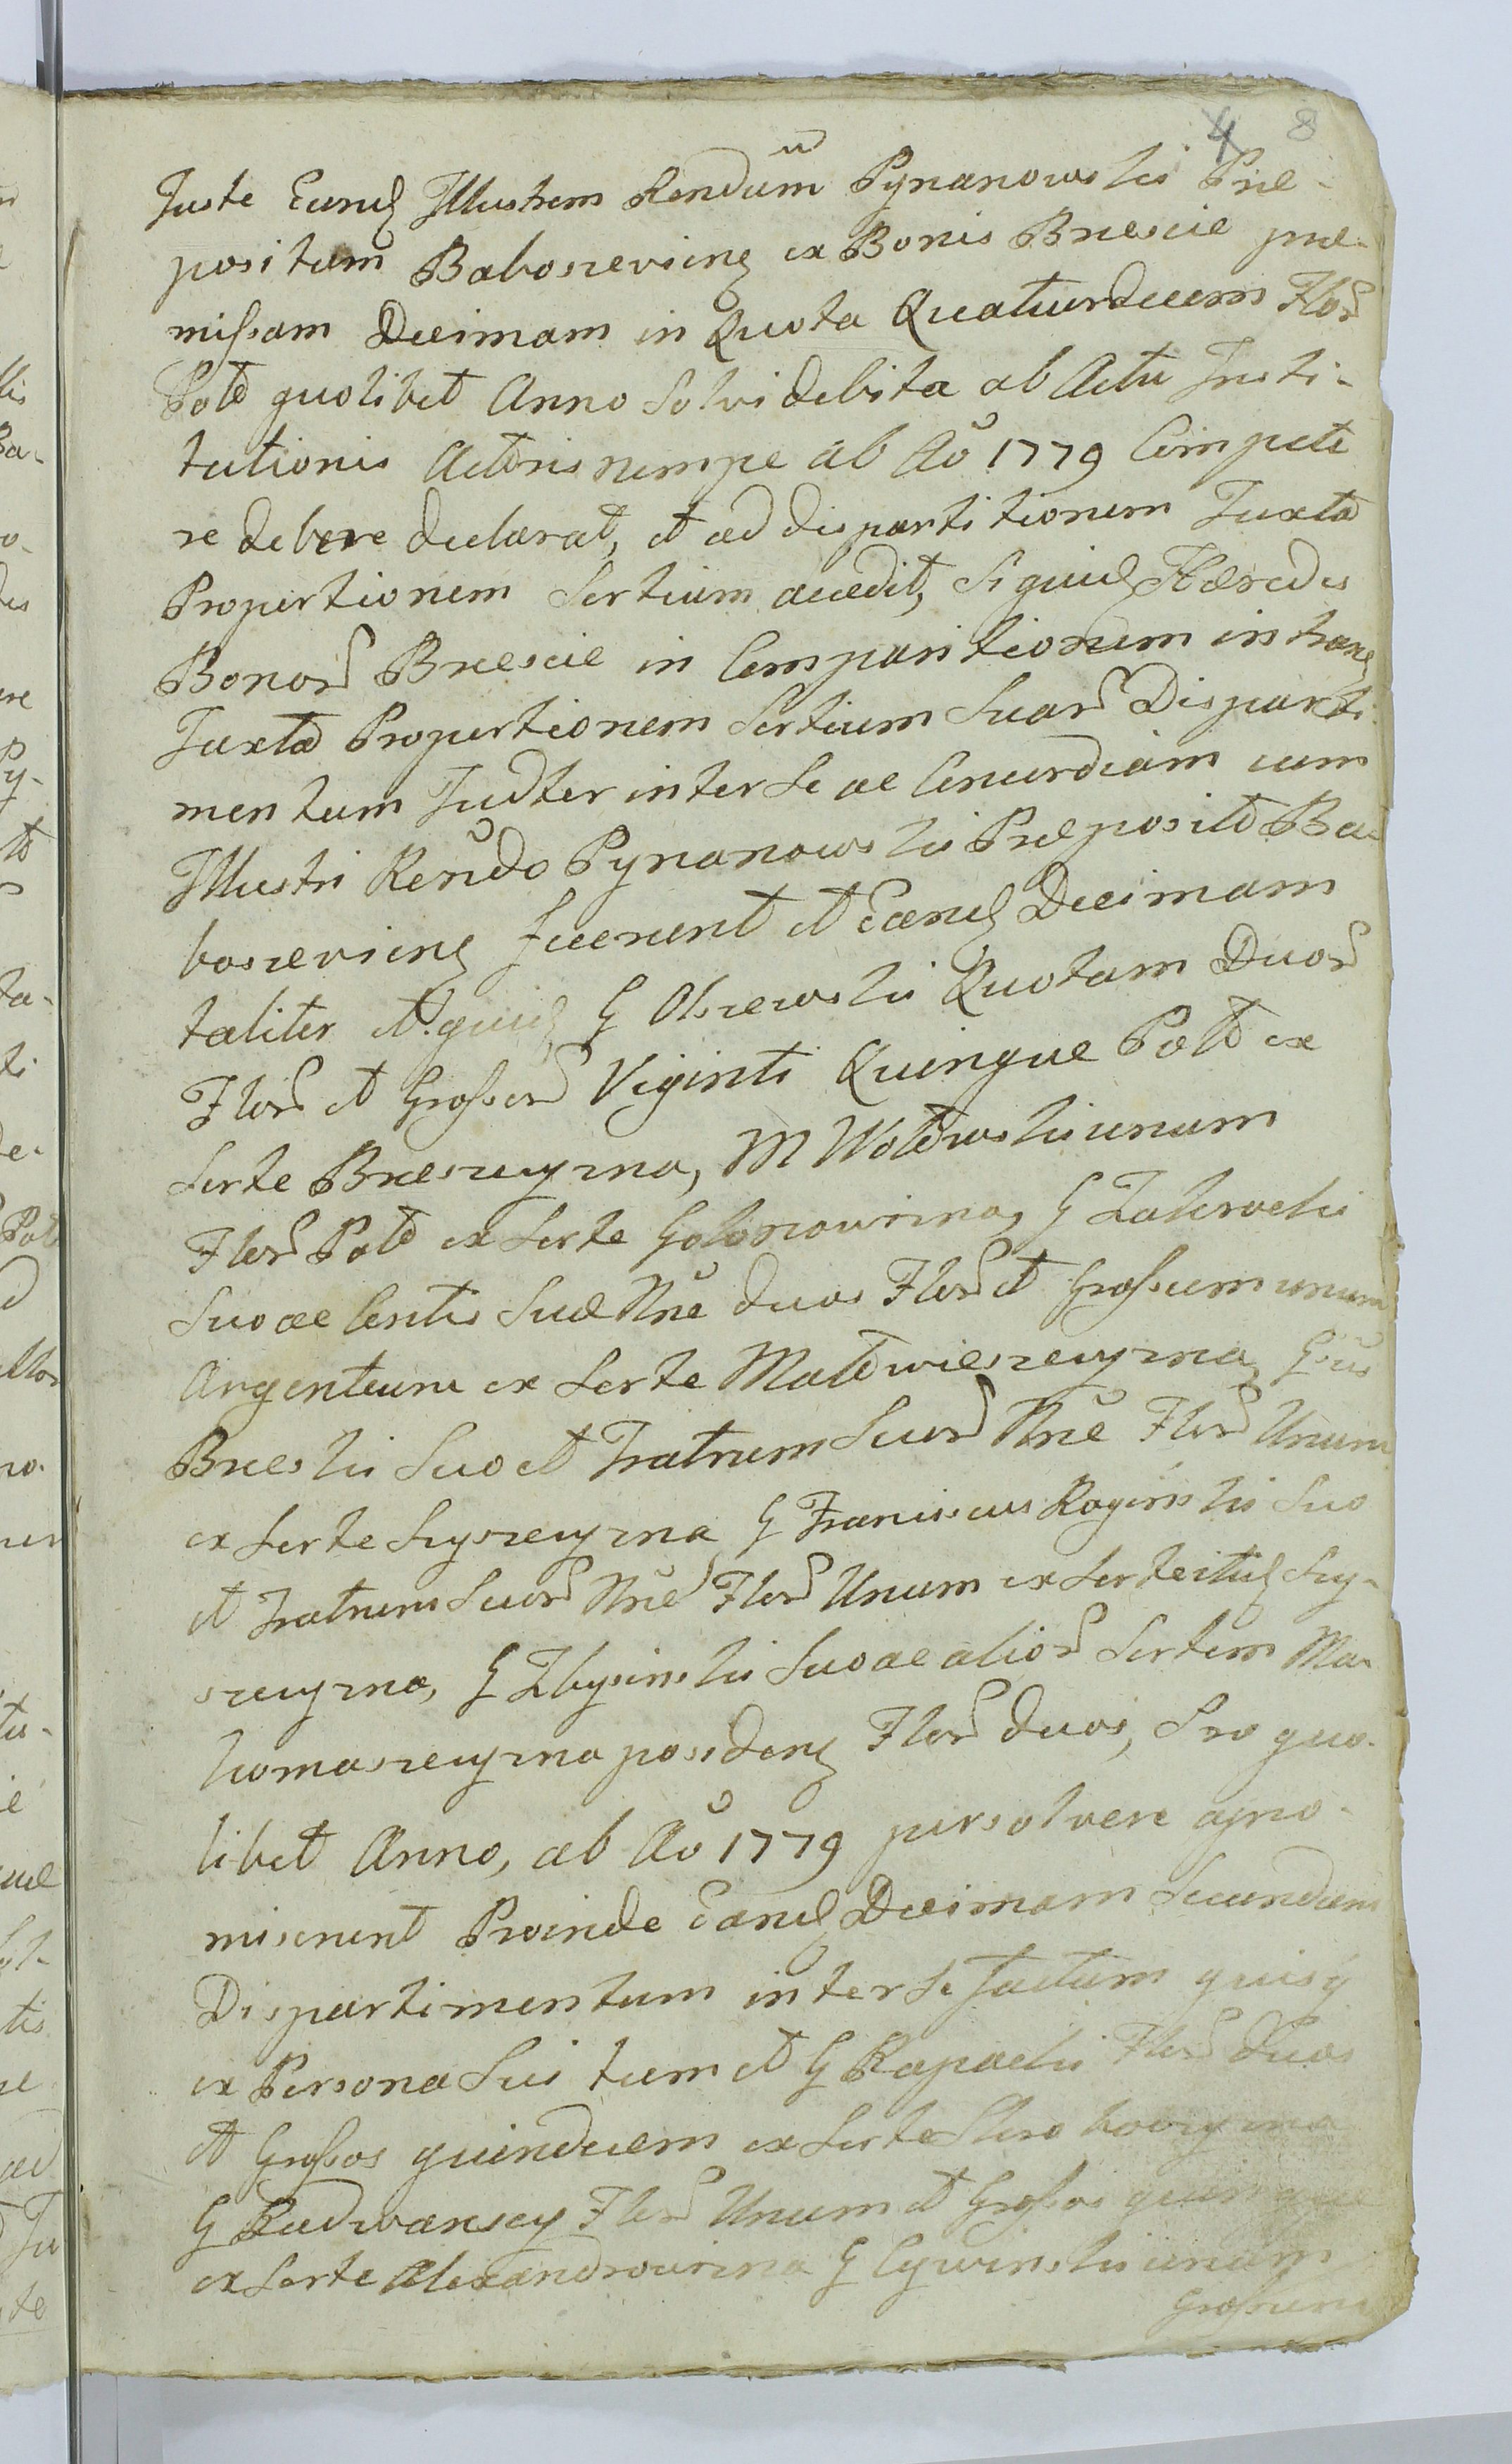 4 8
Juste Eund Illustrem Rendum Pynanowski Præ-
positum Baboszevien ex Bonis Brzescie præ-
missam Decimam in Quota Quatuordecem Flor
Pol quolibet Anno Solvi debita ab Actu Insti-
tutionis Actoris nempe ab Ao 1779 Compete
re debere declarat, et ad dispartitionem Juxta
Proportionem Sortium accedit, Siquid Hæredes
Bonor Brzescie in Comparitionem instrane
Juxta Proportionem Sortium Suar Disparti-
mentum Judter inter Se ac Concordiam cum
Illustri Rendo Pynanowski Præposito Ba-
boszevien fecerunt et Eand Decimam
taliter et quid G Olszewski Quotam Duor
Flor et Grossor Viginti Quinque Pol ex
Sorte Brzesczyzna, M Wolowski unum
Flor Pol ex Sorte Golonowizna, G Zakrzecki
Suo ac Contis Suæ Nne duos Flor et Grossum unum
Argenteum ex Sorte Matewieszczyzna, G
Brzeski Suo et Fratrum Suor Nne Flor Unum
ex Sorte Szyszczyzna G Franciscus Roginski Suo
et Fratrum Suor Nne Flor Unum ex Sorte itid Szy-
szczyzna, G Zbysinski Suo ac alior Sortem Ma-
homaszczyzna posiden Flor duos, Pro quo-
libet Anno, ab Ao 1779 persolvere apro-
miserunt Proinde Eand Decimam Secundum
Dispartimentum inter Se factum quisq
ex Persona Sui tum et G Rapacki Flor duos
et Grossos quindecem ex Sorte
G Radwansey Flor Unum et Grossos quinque
ex Sorte Alexandrowizna G Cywinski unum
Grossum